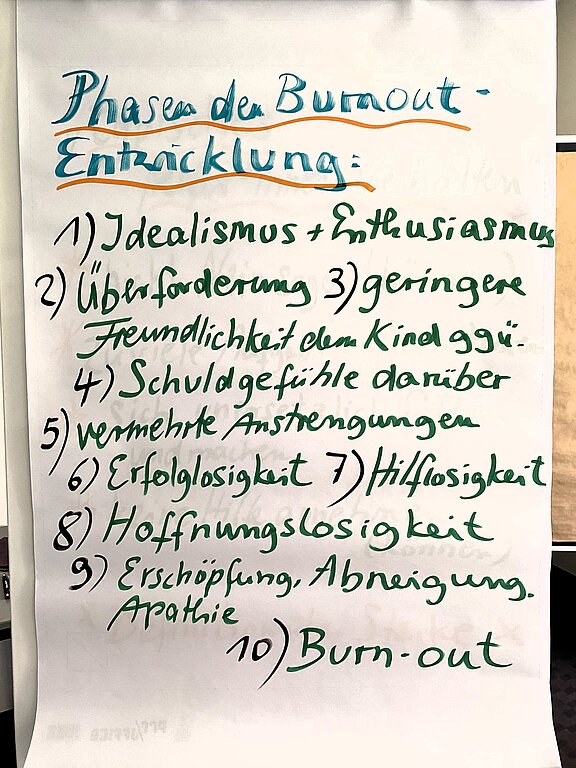 Phasen der Burnout-
Entwicklung:
1) Idealismus + Enthusiasmus
2) Überforderung 3) geringere
Freundlichkeit dem Kind ggü.
4) Schuldgefühle darüber
5) vermehrte Anstrengungen
6) Erfolglosigkeit 7) Hilflosigkeit
8) Hoffnungslosigkeit
9) Erschöpfung, Abneigung.
Apathie
10) Burn-out